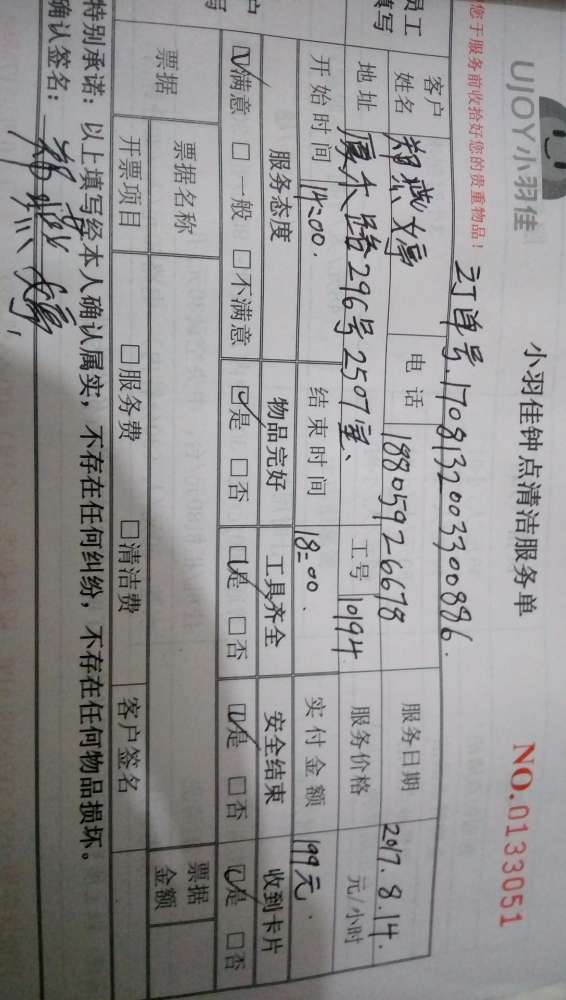 UJOY小羽佳
小羽佳钟点清洁服务单
NO.0133051
您于服务前收拾好您的贵重物品！
订单号.1708132003300886.
员工
填写
客户姓名 郑燕婷 电话 18805926678 服务日期 2017.8.14.
地址 厦禾路296号2507室、 工号 10194 服务价格 元/小时
开始时间 14:00. 结束时间 18:00. 实付金额 199元.
户
写
服务态度 物品完好 工具齐全 安全结束 收到卡片
☑满意 □一般 □不满意 ☑是 □否 ☑是 □否 ☑是 □否 ☑是 □否
票据 票据名称 票据金额
开票项目 □服务费 □清洁费 客户签名
特别承诺：以上填写经本人确认属实，不存在任何纠纷，不存在任何物品损坏。
确认签名：郑燕婷